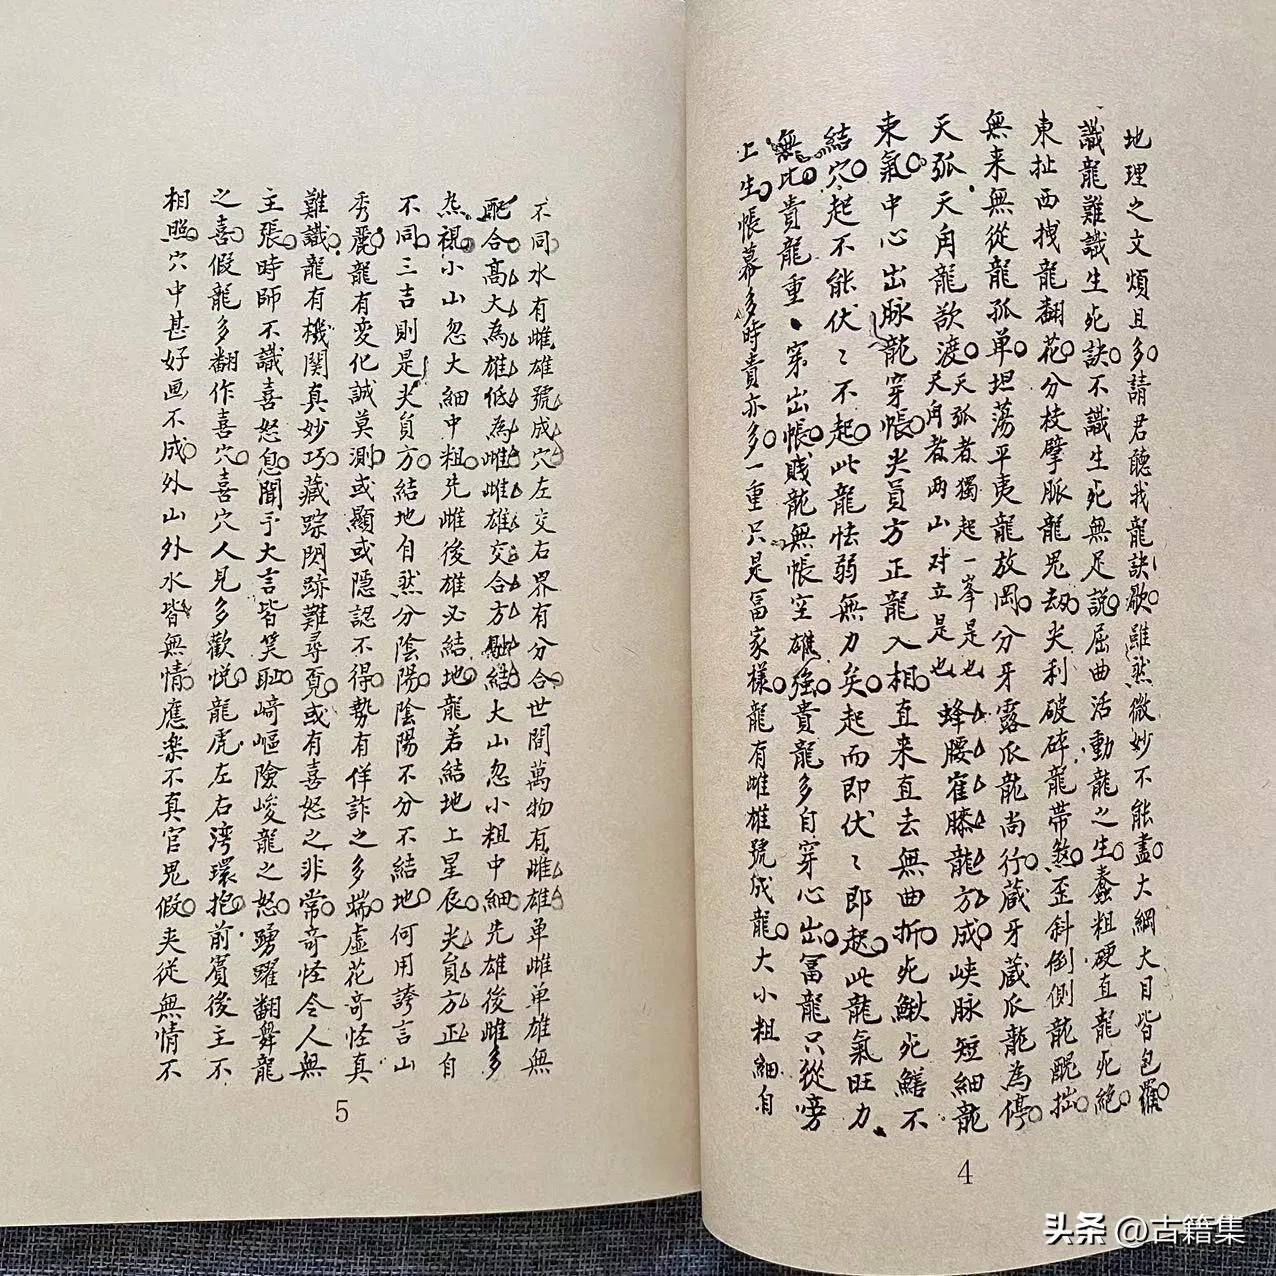 地理之文煩且多請君聽我龍訣歌雖然微妙不能盡大綱大目皆包羅
識龍難識生死訣不識生死無足說屈曲活動龍之生蠢粗硬直龍死絕
東扯西拽龍翻花分枝擘脈龍鬼刼尖利破碎龍帶煞歪斜倒側龍醜拙
無来無從龍孤单坦荡平夷龍放岡分牙露爪龍尚行蔵牙蔵爪龍為停
天弧天角龍欲渡天弧者獨起一峯是也天角者两山对立是也蜂腰崔膝龍方成峡脉短細龍
束氣中心出脉龍穿帳尖員方正龍入相直来直去無曲折死鰍死鱔不
結穴起不能伏〻不起此龍怯弱無力矣起而即伏〻即起此龍氣旺力
無比貴龍重〻穿出帳賎龍無帳空雄強貴龍多自穿心出冨龍只從旁
上生帳幕多時貴亦多一重只是冨家樣龍有雌雄號成龍大小粗細自
4
不同水有雌雄號成穴左交右界有分合世間萬物有雌雄单雌单雄無
配合高大為雄低為雌雌雄交合方融結大山忽小粗中細先雄後雌多
焘視小山忽大細中粗先雌後雄必結地龍若結地上星辰尖員方正自
不同三吉則是尖員方結地自然分陰陽陰陽不分不結地何用誇言山
秀麗龍有変化誠莫測或顯或隱認不得勢有佯詐之多端虛花奇怪真
難識龍有機関真妙巧藏踪閃跡難尋覓或有喜怒之非常奇怪令人無
主張時師不識喜怒息聞予大言皆笑耻崎嶇險峻龍之怒踴躍翻舞龍
之喜假龍多翻作喜穴喜穴人見多歡悅龍虎左右湾環抱前賓後主不
相照穴中甚好画不成外山外水皆無情應楽不真官鬼假夹従無情不
5
头条 @古籍集